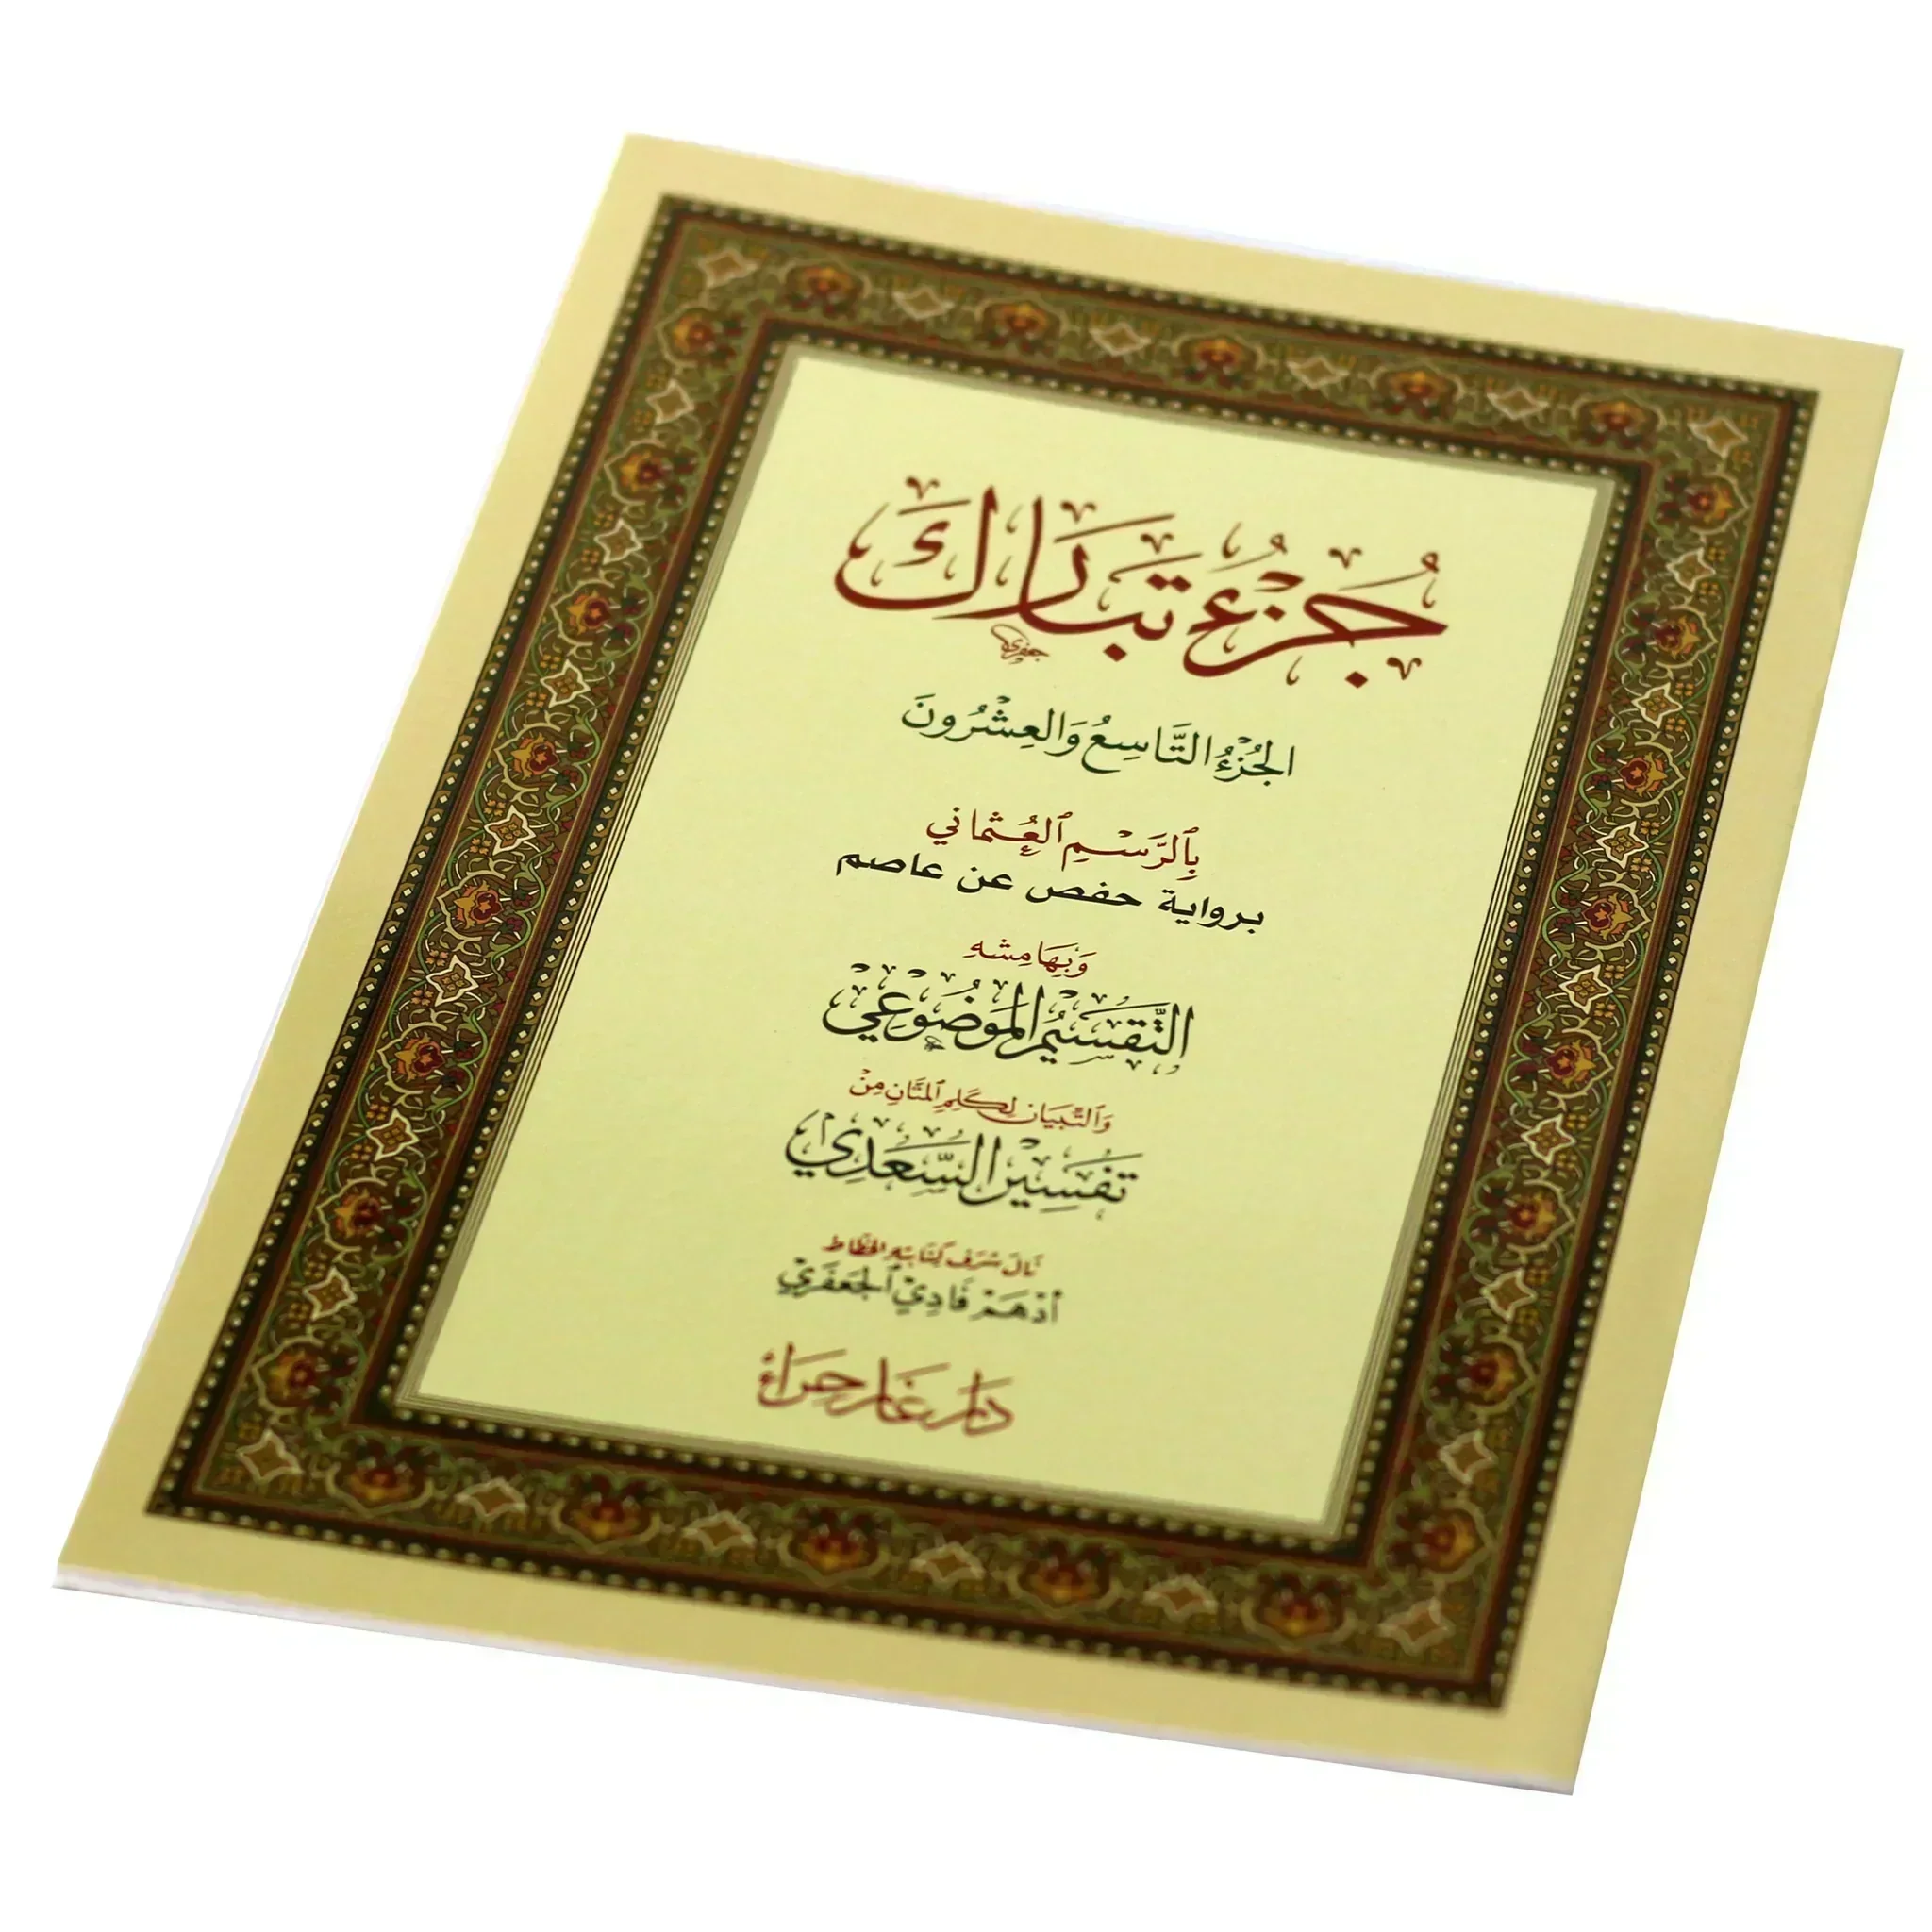 جُزْءُ تَبَارَكَ
جعفري
الجُزْءُ التَّاسِعُ وَالعِشْرُونَ
بِٱلرَّسْمِ ٱلعُثْمَانِي
برواية حفص عن عاصم
وَبِهَامِشِهِ
التَّقْسِيْمُ المَوْضُوْعِيْ
وَٱلتِّبْيَان لِكَلِمِ ٱلمَنَّانِ مِنْ
تَفْسِيْرِ السَّعْدِيْ
نَالَ شَرَفَ كِتَابَتِهِ الخَطَّاط
أَدْهَمْ فَادِيْ ٱلجَعْفَرِيْ
دَار غَار حِرَاء